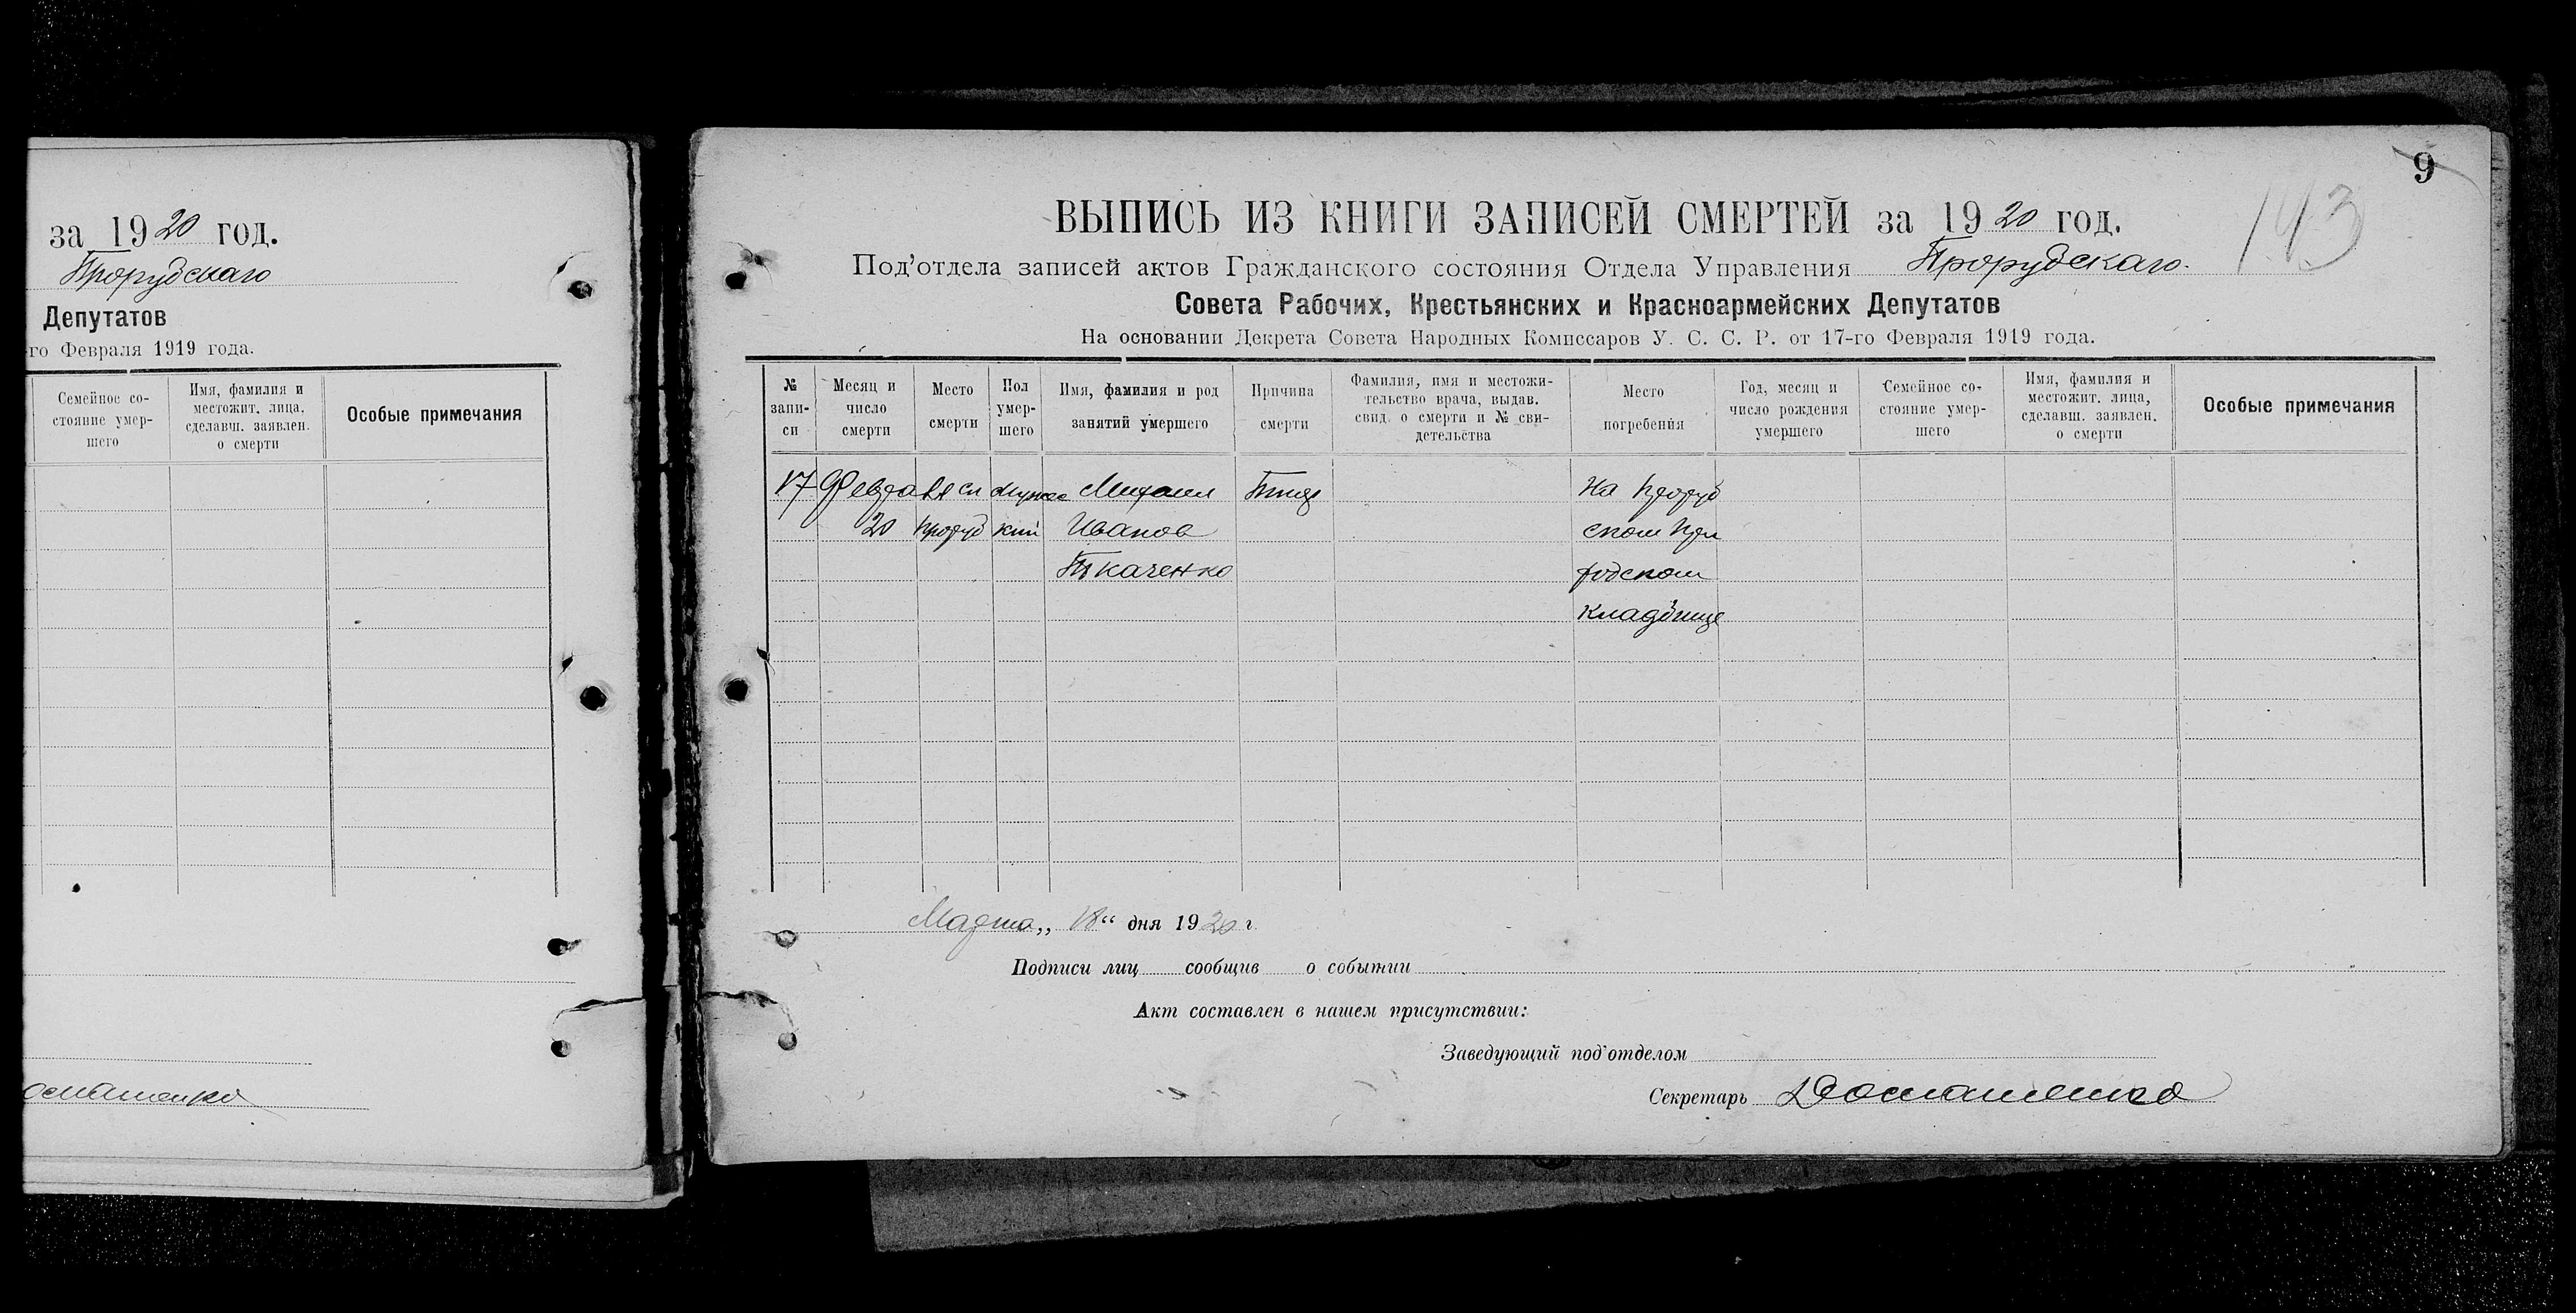 за 1920 год.
Прорубскаго
Депутатов
го Февраля 1919 года.
Семейное со-
стояние умер-
шего
Имя, фамилия и
местожит. лица,
сделавш. заявлен.
о смерти
Особые примечания
9
143
ВЫПИСЬ ИЗ КНИГИ ЗАПИСЕЙ СМЕРТЕЙ за 1920 год.
Под'отдела записей актов Гражданского состояния Отдела Управления Прорубскаго.
Совета Рабочих, Крестьянских и Красноармейских Депутатов
На основании Декрета Совета Народных Комиссаров У. С. С. Р. от 17-го Февраля 1919 года.
№
запи-
си
Месяц и
число
смерти
Место
смерти
Пол
умер-
шего
Имя, фамилия и род
занятий умершего
Причина
смерти
Фамилия, имя и местожи-
тельство врача, выдав.
свид. о смерти и № сви-
детельства
Место
погребения
Год, месяц и
число рождения
умершего
Семейное со-
стояние умер-
шего
Имя, фамилия и
местожит. лица,
сделавш. заявлен.
о смерти
Особые примечания
17
Февра
20
Вя сл
Проруб
мужес
кий
Михаил
Иванов
Ткаченко
На Проруб
ском
кладбище
Марта „18“ дня 1920 г.
Подписи лиц сообщив о событии
Акт составлен в нашем присутствии:
Заведующий под'отделом
Секретарь Домашенко
омашенко